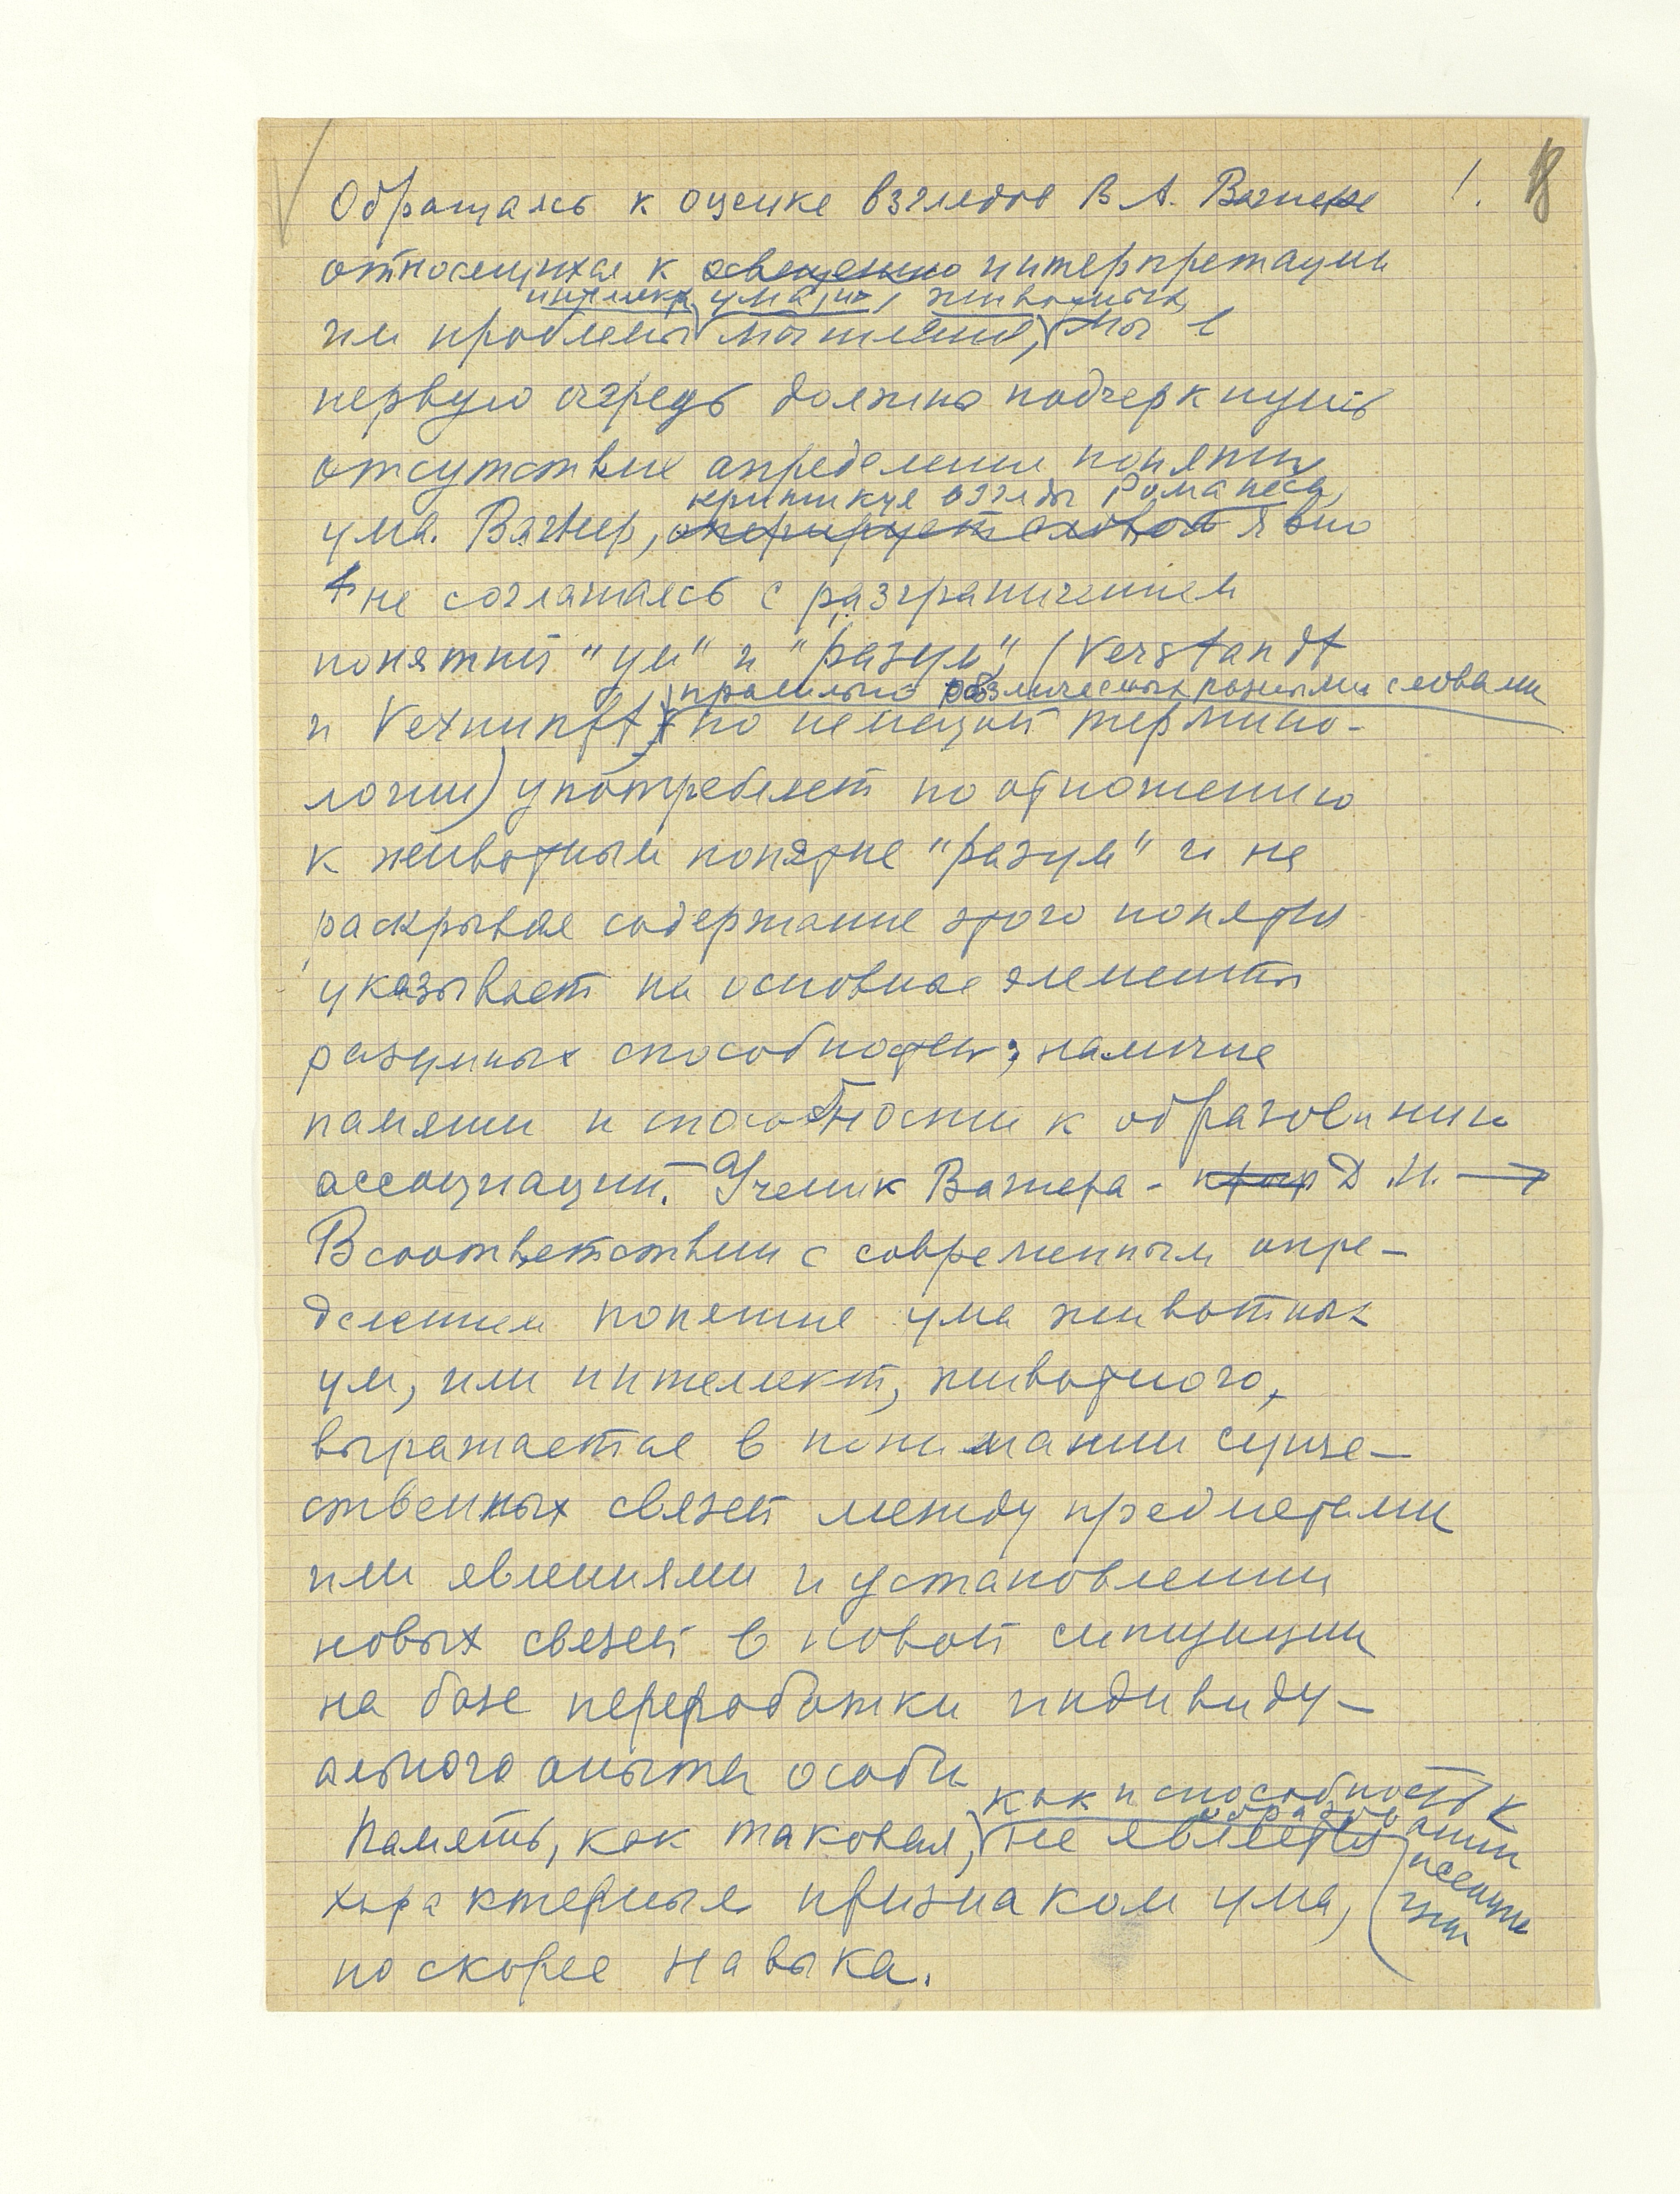 1. 18
Обращаясь к оценке взглядов В. А. Вагнера
относящихся к освещению интерпретации
интеллекта, ума, животных,
им проблемы мышления, мы в
первую очередь должно подчеркнуть
отсутствие определения понятия
критикуя взгляды Романеса,
ума. Вагнер, оперирует словом явно
не соглашаясь с разграничением
понятий "ум" и "разум", (Verstandt
правильно различаемых разными словами
и Vernunft, по немецкой термино-
логии) употребляет по отношению
к животным понятие "разум" и не
раскрывая содержание этого понятия
указывает на основные элементы
разумных способностей; наличие
памяти и способности к образованию
ассоциаций. Ученик Вагнера - проф Д. Н. →
В соответствии с современным опре-
делением понятие ума животных
ум, или интеллект, животного,
выражается в понимании суще-
ственных связей между предметами
или явлениями и установлении
новых связей в новой ситуации
на базе переработки индивиду-
ального опыта особи
как и способность к
образованию
ассоциаций
Память, как таковая, не является
характерным признаком ума,
но скорее навыка.